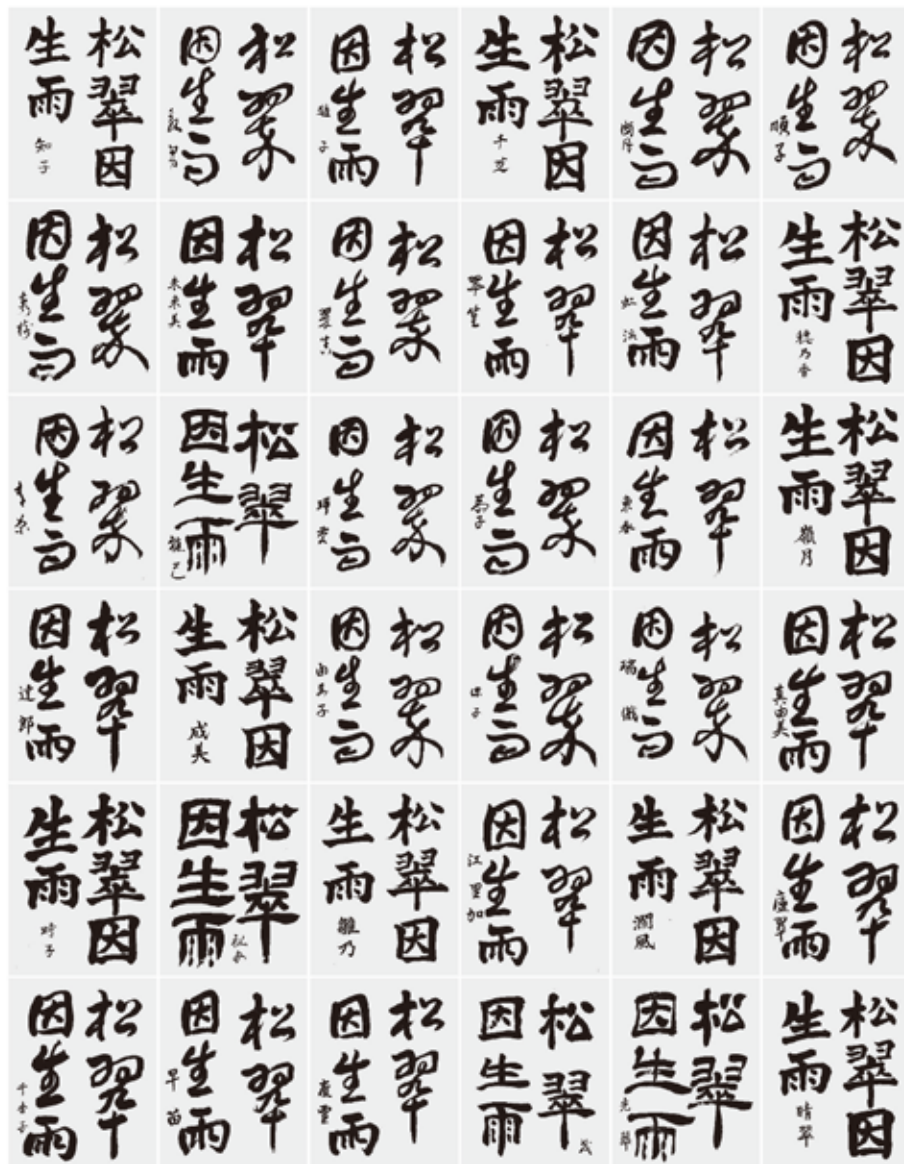 松翠因
生雨
知子
松翠
因生雨
松翠
因生雨
松翠因
生雨
千芝
松翠
因生雨
松翠
因生雨
順子
松翠
因生雨
松翠
因生雨
未来美
松翠
因生雨
松翠
因生雨
翠笙
松翠
因生雨
松翠因
生雨
穂乃香
松翠
因生雨
松翠
因生雨
雅己
松翠
因生雨
松翠
因生雨
松翠
因生雨
松翠因
生雨
嶺月
松翠
因生雨
達郎
松翠因
生雨
成美
松翠
因生雨
松翠
因生雨
松翠
因生雨
松翠
因生雨
真由美
松翠因
生雨
松翠
因生雨
松翠因
生雨
雛乃
松翠
因生雨
江里加
松翠因
生雨
松翠
因生雨
松翠
因生雨
松翠
因生雨
早苗
松翠
因生雨
松翠
因生雨
松翠
因生雨
松翠因
生雨
晴翠